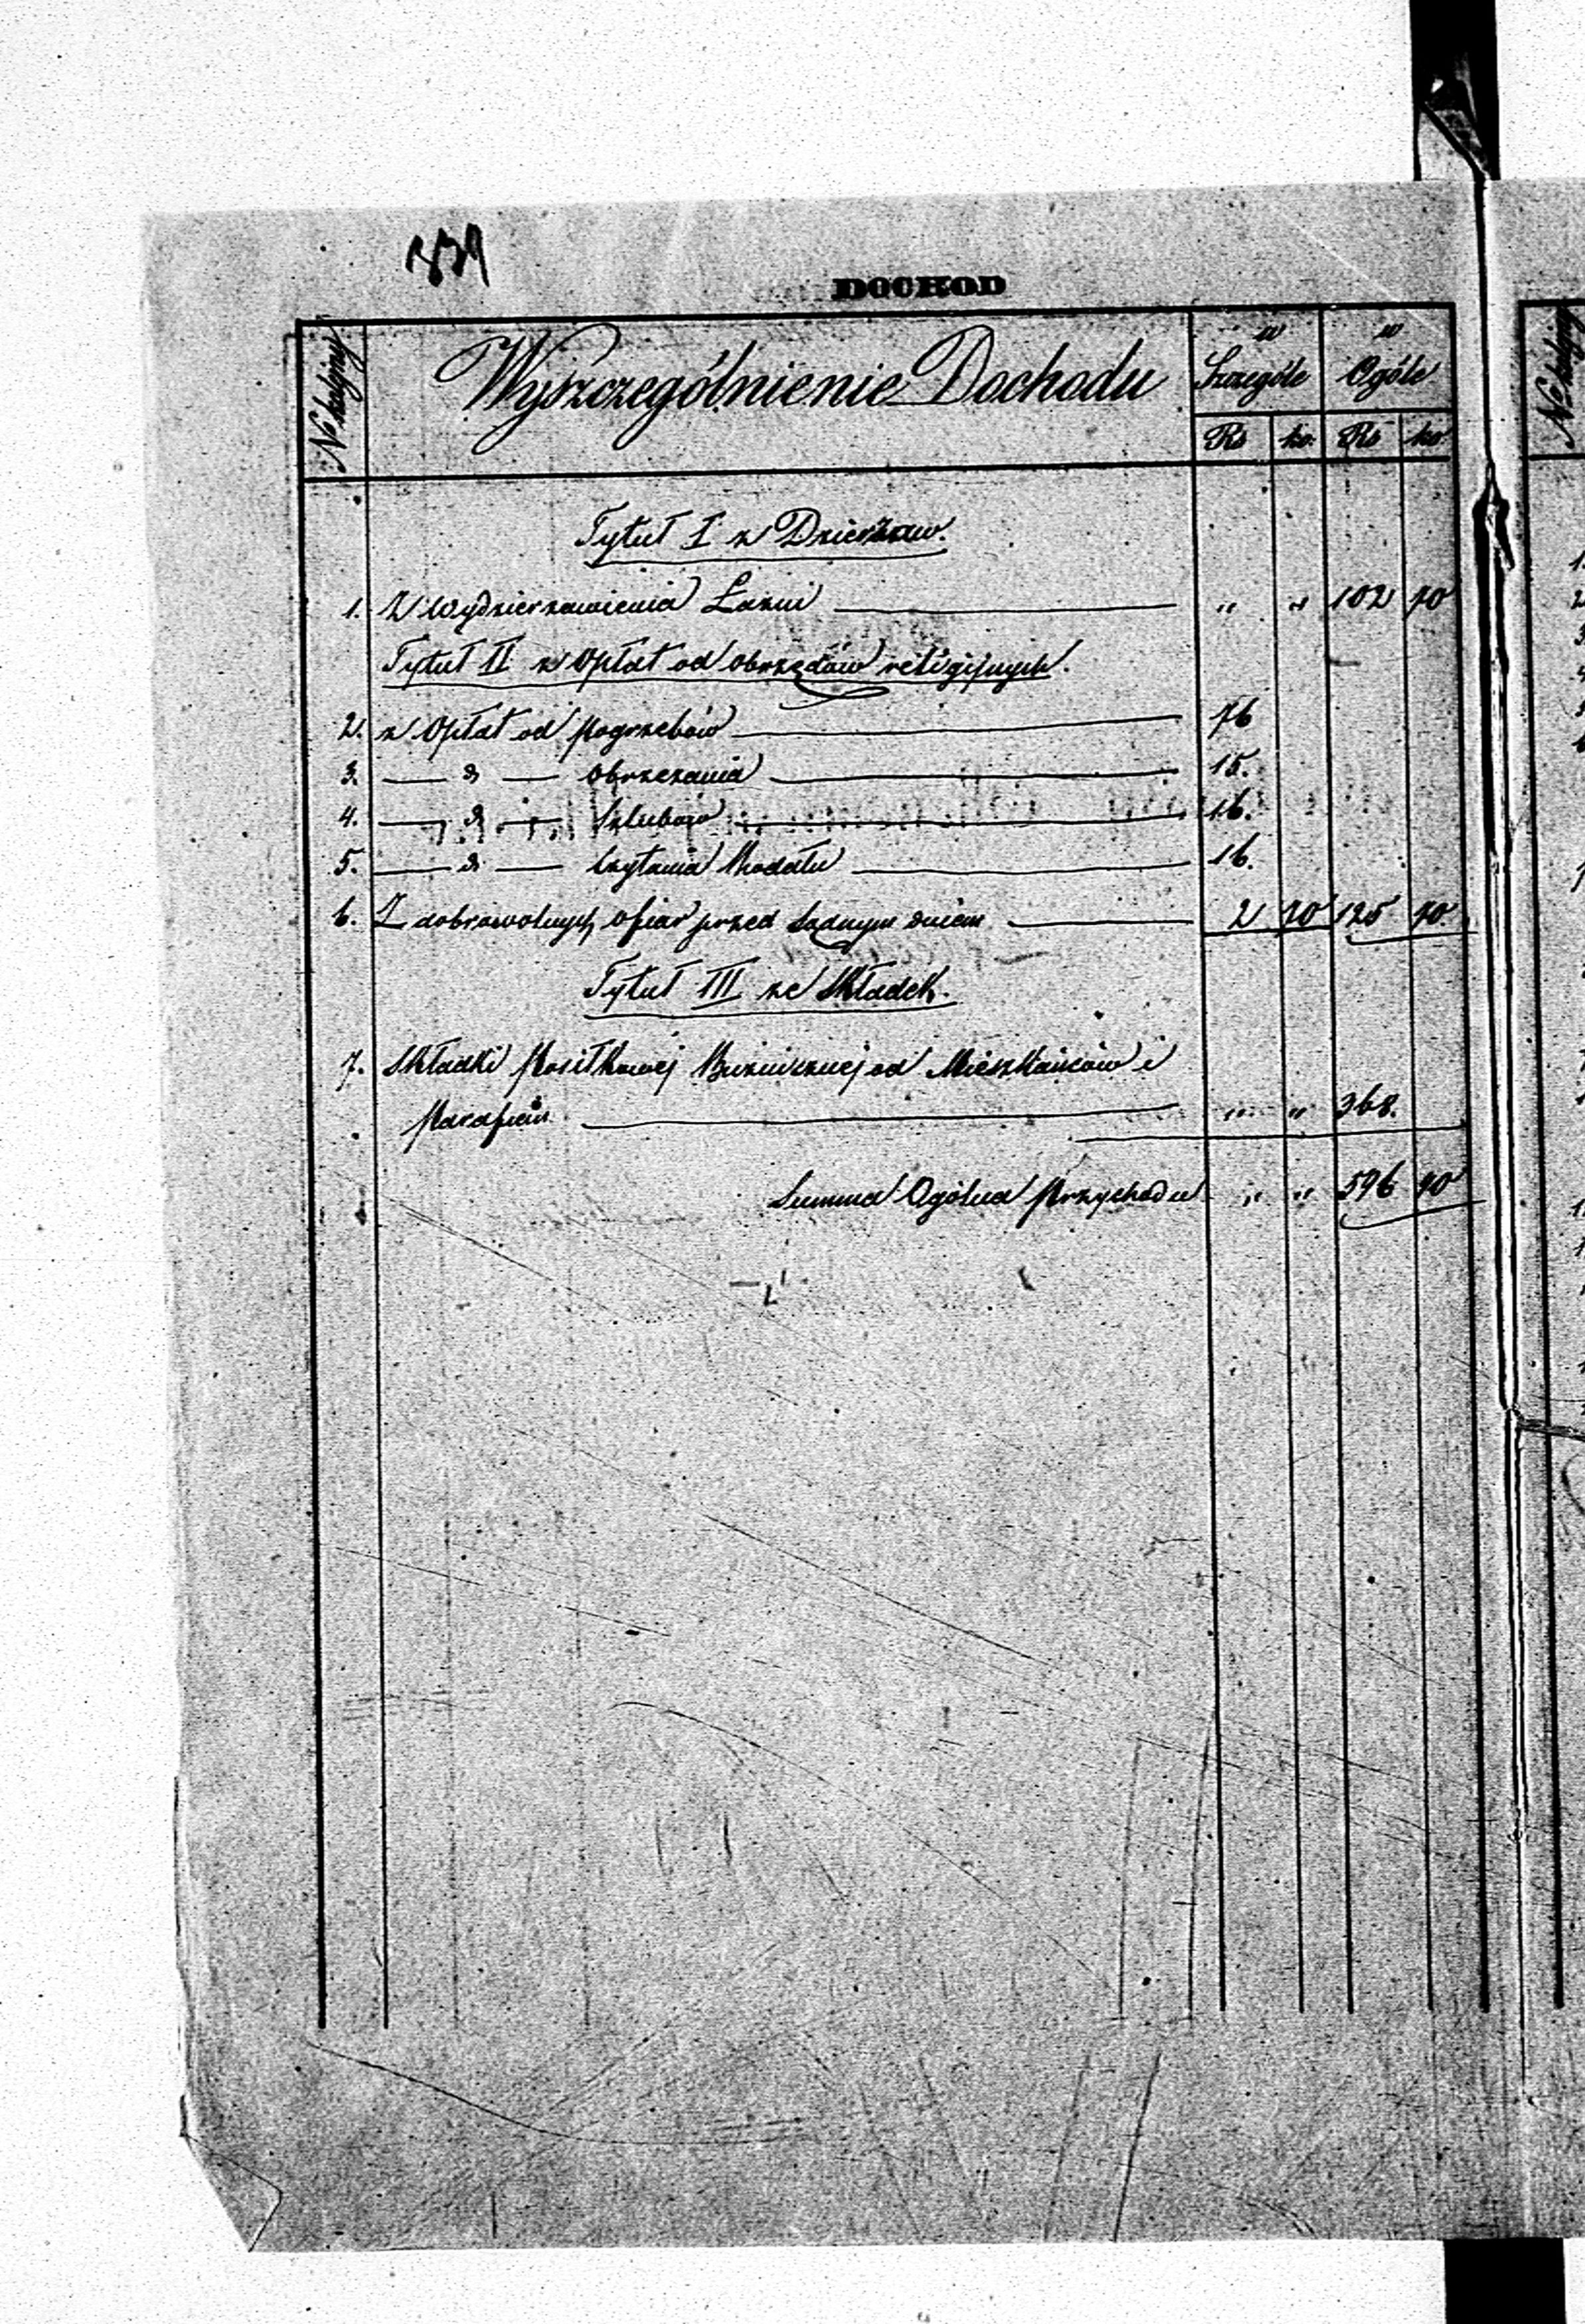 DOCHOD
№ kolejny Wyszczególnienie Dochodu w Szczególe w Ogóle
Rs ko. Rs ko.
Tytuł I z Dzierżaw.
1. Z wydzierzawienia Łazni „ „ 102
Tytuł II z Opłat od obrzędów religijnych.
2. z Opłat od pogrzebów 76
3. — d — obrzezania 15.
4. — d — Szlubów 16.
5. — d — Czytania Rodału 16.
6. Z dobrowolnych ofiar przed Sądnym dniem 2 125
Tytuł III ze Składek.
7. Składki Posiłkowej Bużnicznej od Mieszkańców i
Parafian „ „ 368.
Summa Ogólna Przychodu „ „ 596